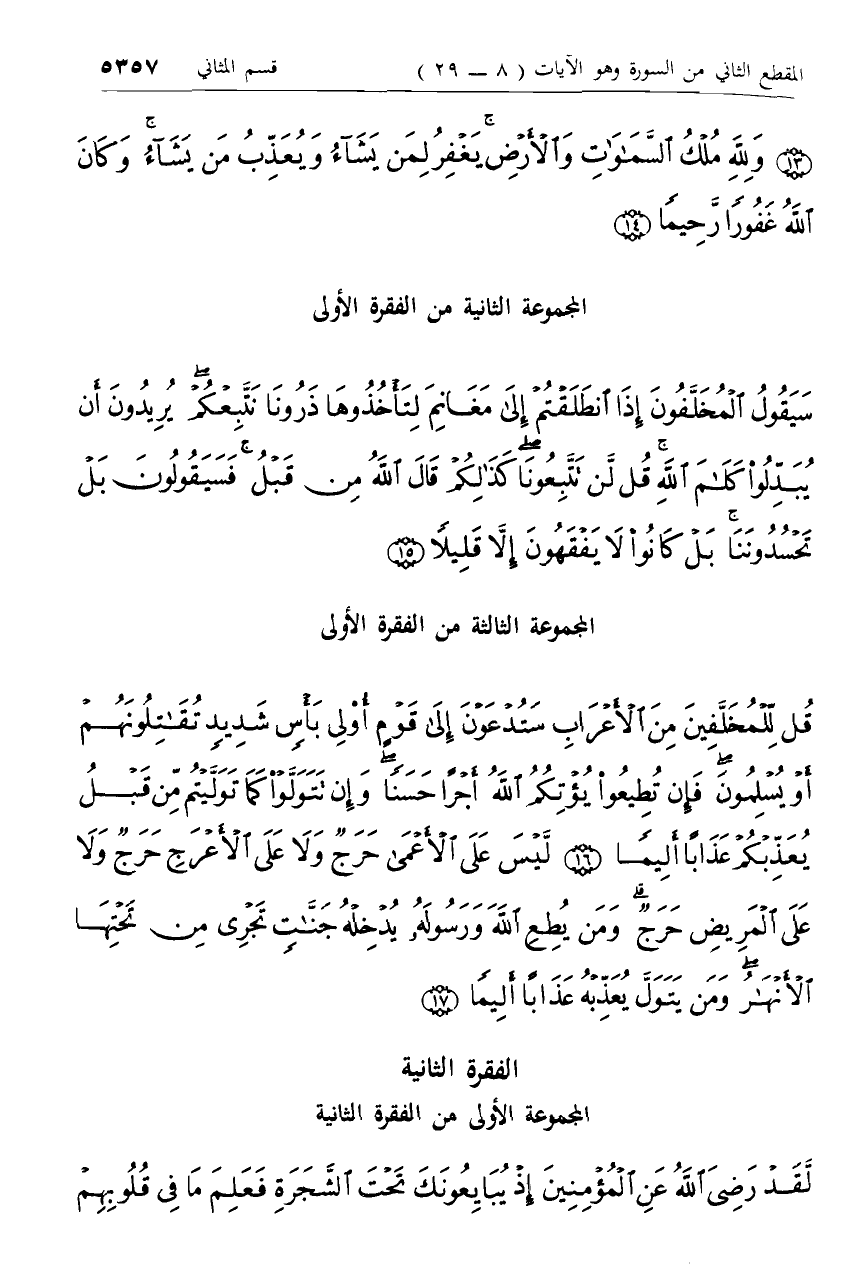 المقطع الثاني من السورة وهو الآيات ( ٨ ــ ٢٩ ) قسم المثاني ٥٣٥٧
١٣ وَلِلَّهِ مُلْكُ ٱلسَّمَٰوَٰتِ وَٱلْأَرْضِۚ يَغْفِرُ لِمَن يَشَآءُ وَيُعَذِّبُ مَن يَشَآءُۚ وَكَانَ
ٱللَّهُ غَفُورًا رَّحِيمًا ١٤
المجموعة الثانية من الفقرة الأولى
سَيَقُولُ ٱلْمُخَلَّفُونَ إِذَا ٱنطَلَقْتُمْ إِلَىٰ مَغَانِمَ لِتَأْخُذُوهَا ذَرُونَا نَتَّبِعْكُمْۖ يُرِيدُونَ أَن
يُبَدِّلُوا۟ كَلَٰمَ ٱللَّهِۚ قُل لَّن تَتَّبِعُونَا كَذَٰلِكُمْ قَالَ ٱللَّهُ مِن قَبْلُۖ فَسَيَقُولُونَ بَلْ
تَحْسُدُونَنَاۚ بَلْ كَانُوا۟ لَا يَفْقَهُونَ إِلَّا قَلِيلًا ١٥
المجموعة الثالثة من الفقرة الأولى
قُل لِّلْمُخَلَّفِينَ مِنَ ٱلْأَعْرَابِ سَتُدْعَوْنَ إِلَىٰ قَوْمٍ أُو۟لِى بَأْسٍ شَدِيدٍ تُقَٰتِلُونَهُمْ
أَوْ يُسْلِمُونَۖ فَإِن تُطِيعُوا۟ يُؤْتِكُمُ ٱللَّهُ أَجْرًا حَسَنًاۖ وَإِن تَتَوَلَّوْا۟ كَمَا تَوَلَّيْتُم مِّن قَبْلُ
يُعَذِّبْكُمْ عَذَابًا أَلِيمًا ١٦ لَّيْسَ عَلَى ٱلْأَعْمَىٰ حَرَجٌ وَلَا عَلَى ٱلْأَعْرَجِ حَرَجٌ وَلَا
عَلَى ٱلْمَرِيضِ حَرَجٌۗ وَمَن يُطِعِ ٱللَّهَ وَرَسُولَهُۥ يُدْخِلْهُ جَنَّٰتٍ تَجْرِى مِن تَحْتِهَا
ٱلْأَنْهَٰرُۖ وَمَن يَتَوَلَّ يُعَذِّبْهُ عَذَابًا أَلِيمًا ١٧
الفقرة الثانية
المجموعة الأولى من الفقرة الثانية
لَّقَدْ رَضِىَ ٱللَّهُ عَنِ ٱلْمُؤْمِنِينَ إِذْ يُبَايِعُونَكَ تَحْتَ ٱلشَّجَرَةِ فَعَلِمَ مَا فِى قُلُوبِهِمْ